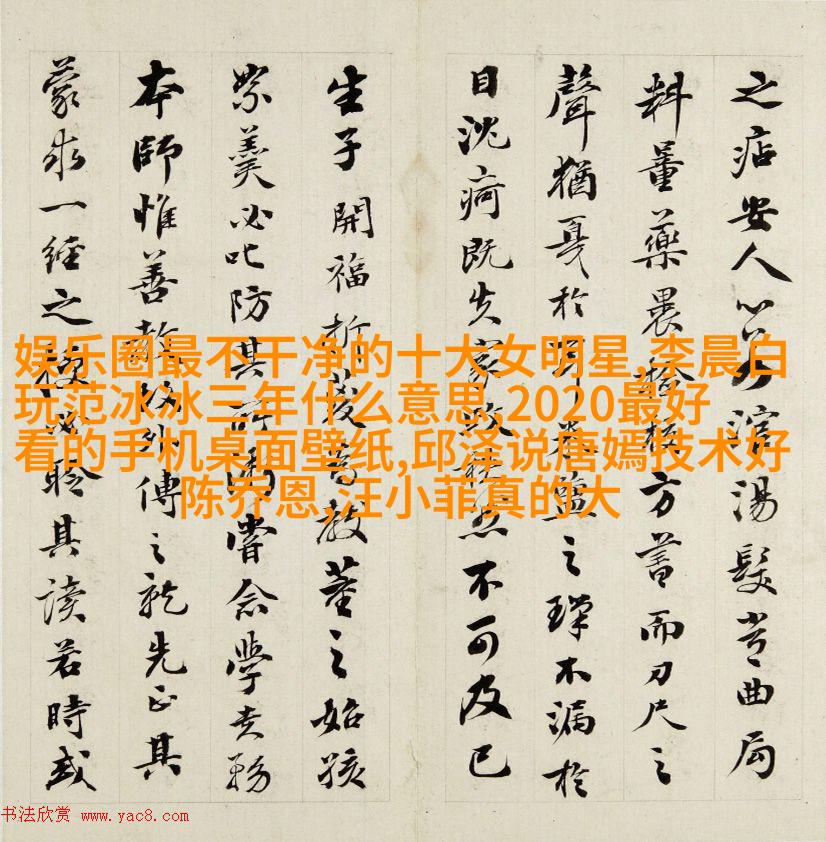 之痁安人湯髮曲局
料量藥方蓄而刀尺之
聲猶戛於耳鹽之瑣不漏於
目沈痾既失家政不可及已
生子開福折葼教荃之始孩
絮羹必叱防其嘗念學
本師惟善外傅之就先正其
蒙求一經之必聆其讀若時或
娱乐圈最不干净的十大女明星,李晨白
玩范冰冰三年什么意思,2020最好
看的手机桌面壁纸,邱泽说唐嫣技术好
陈乔恩,汪小菲真的大
书法欣赏 www.yac8.com